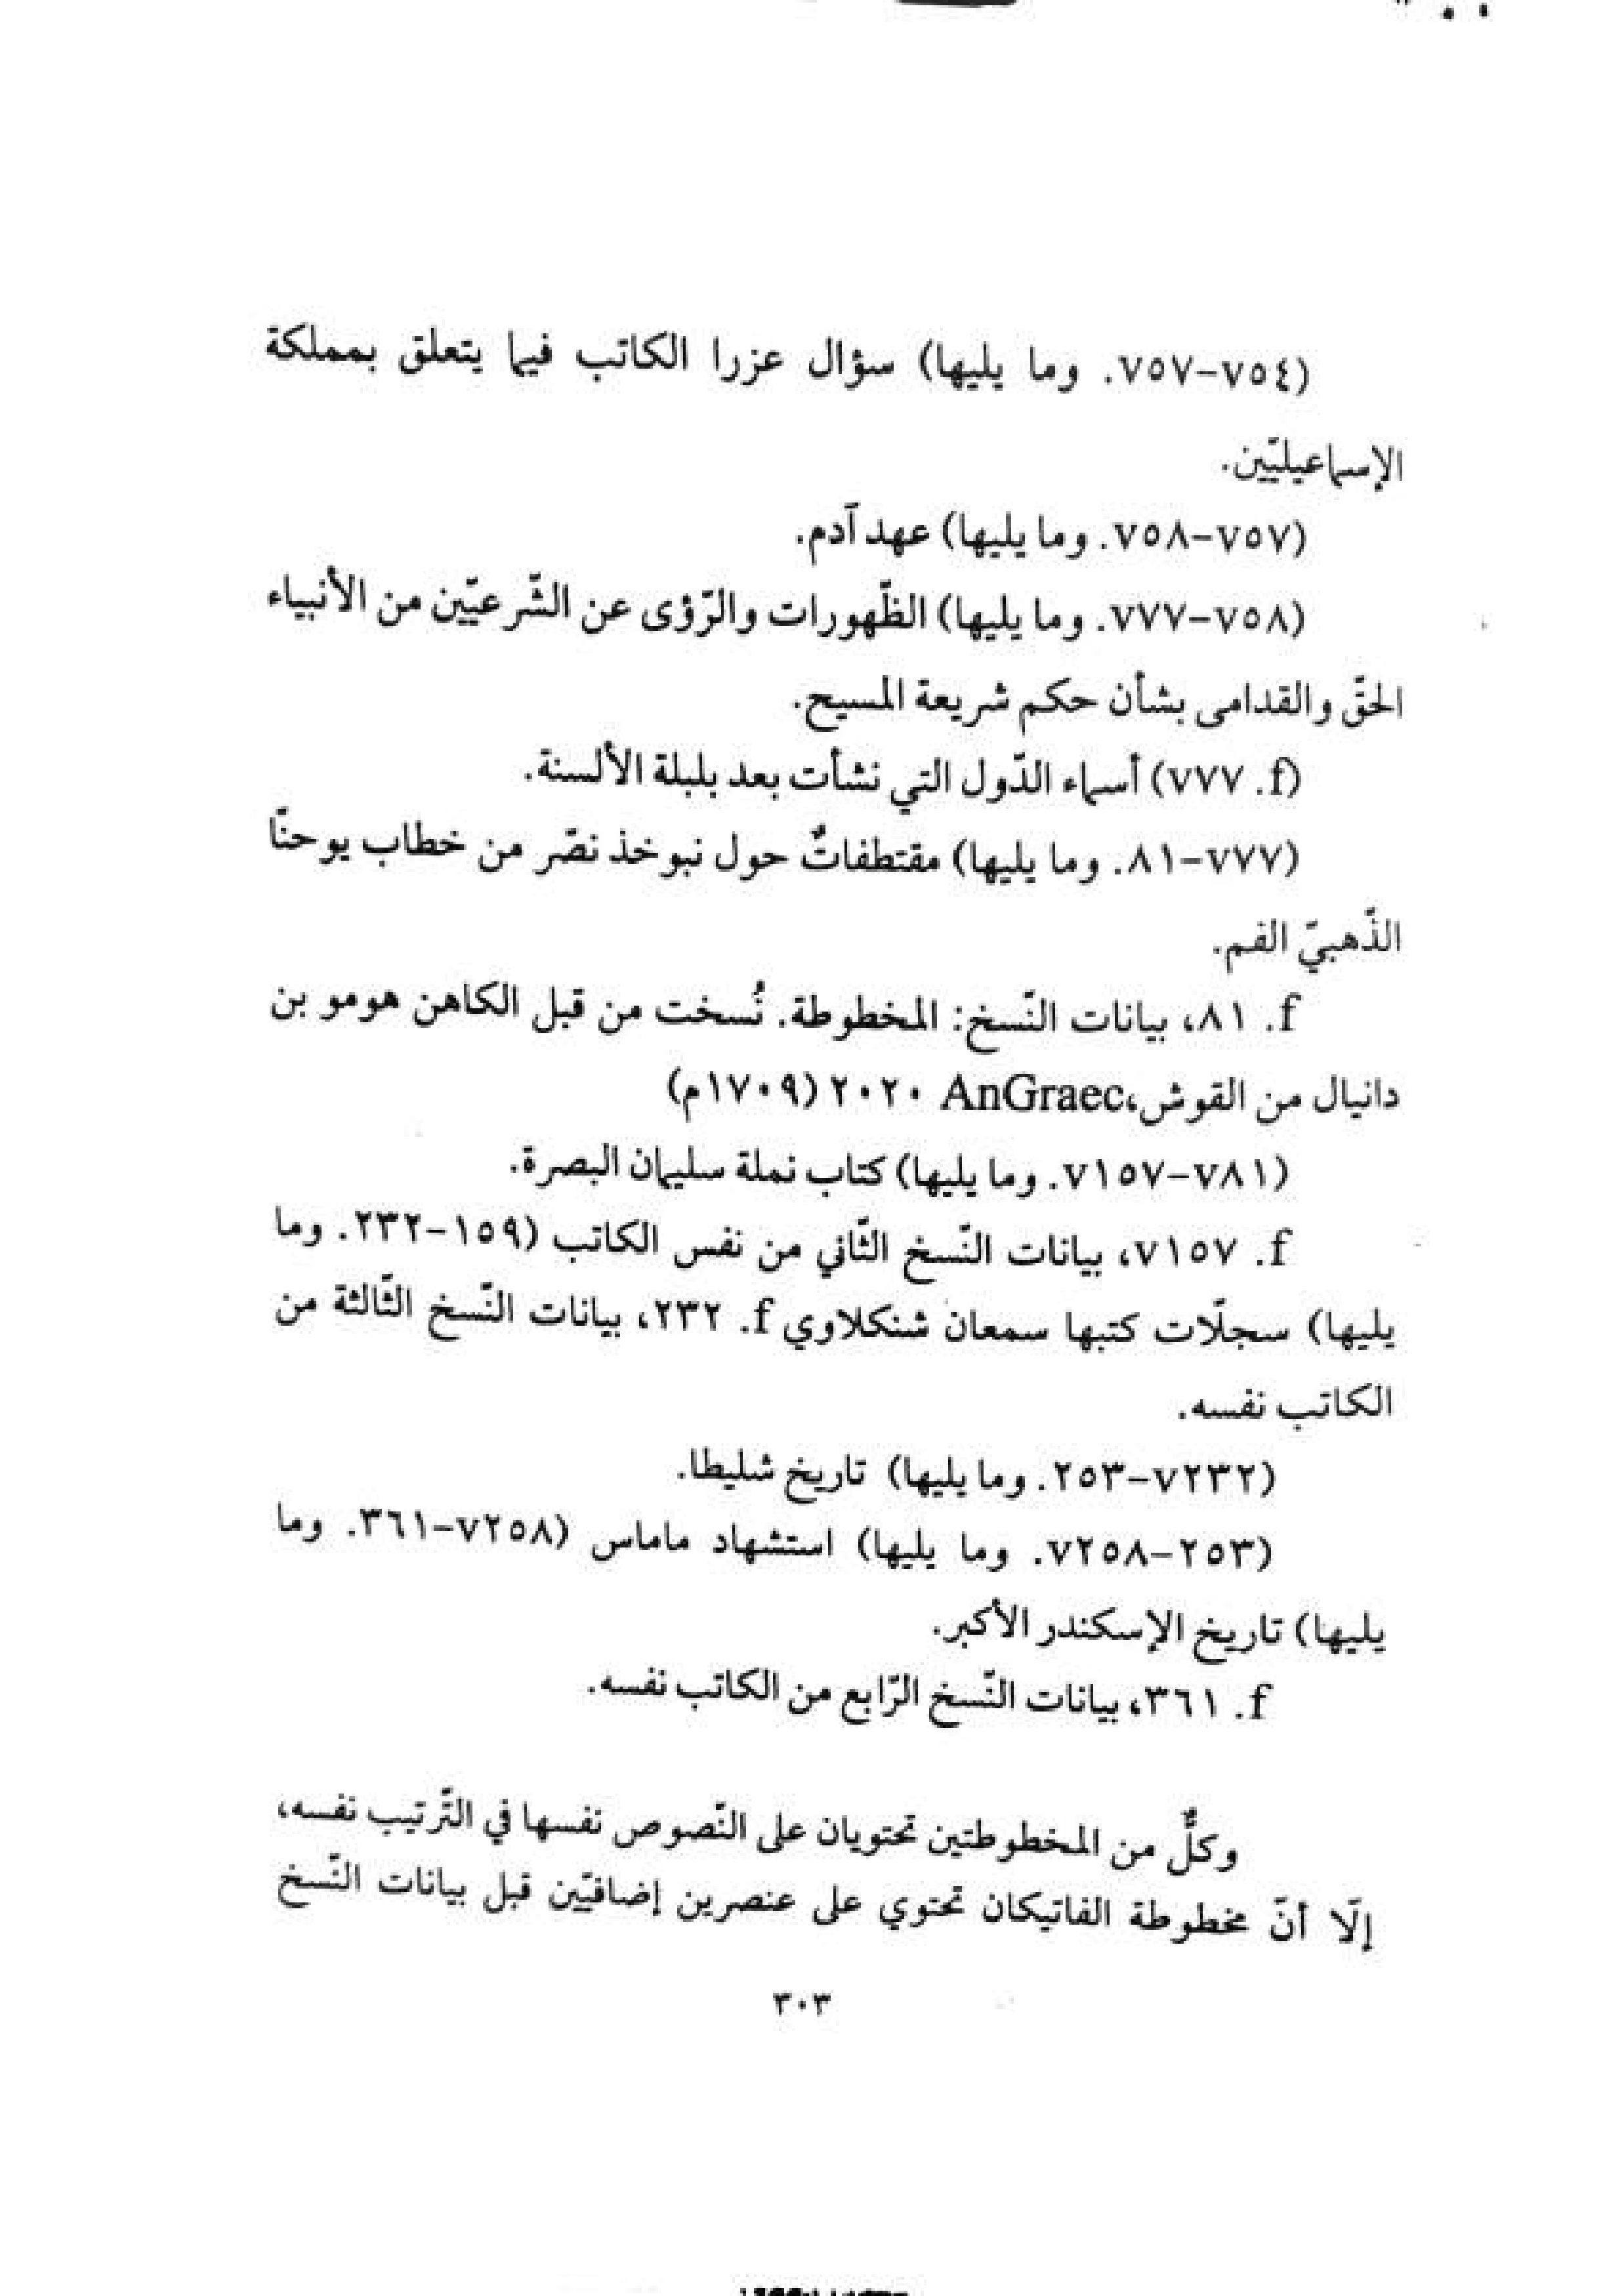 (٧٥٤–٧٥٧. وما يليها) سؤال عزرا الكاتب فيما يتعلق بمملكة
الإسماعيليّين.
(٧٥٧–٧٥٨. وما يليها) عهد آدم.
(٧٥٨–٧٧٧. وما يليها) الظّهورات والرّؤى عن الشّرعيّين من الأنبياء
الحقّ والقدامى بشأن حكم شريعة المسيح.
(f. ٧٧٧) أسماء الدّول التي نشأت بعد بلبلة الألسنة.
(٧٧٧–٨١. وما يليها) مقتطفاتٌ حول نبوخذ نصّر من خطاب يوحنّا
الذّهبيّ الفم.
f. ٨١، بيانات النّسخ: المخطوطة. نُسخت من قبل الكاهن هومو بن
دانيال من القوش،AnGraec ٢٠٢٠ (١٧٠٩م)
(٧٨١–٧١٥٧. وما يليها) كتاب نملة سليمان البصرة.
f. ٧١٥٧، بيانات النّسخ الثّاني من نفس الكاتب (١٥٩–٢٣٢. وما
يليها) سجلّات كتبها سمعان شنكلاوي f. ٢٣٢، بيانات النّسخ الثّالثة من
الكاتب نفسه.
(٧٢٣٢–٢٥٣. وما يليها) تاريخ شليطا.
(٢٥٣–٧٢٥٨. وما يليها) استشهاد ماماس (٧٢٥٨–٣٦١. وما
يليها) تاريخ الإسكندر الأكبر.
f. ٣٦١، بيانات النّسخ الرّابع من الكاتب نفسه.
وكلٌّ من المخطوطتين تحتويان على النّصوص نفسها في التّرتيب نفسه،
إلّا أنّ مخطوطة الفاتيكان تحتوي على عنصرين إضافيّين قبل بيانات النّسخ
٣٠٣